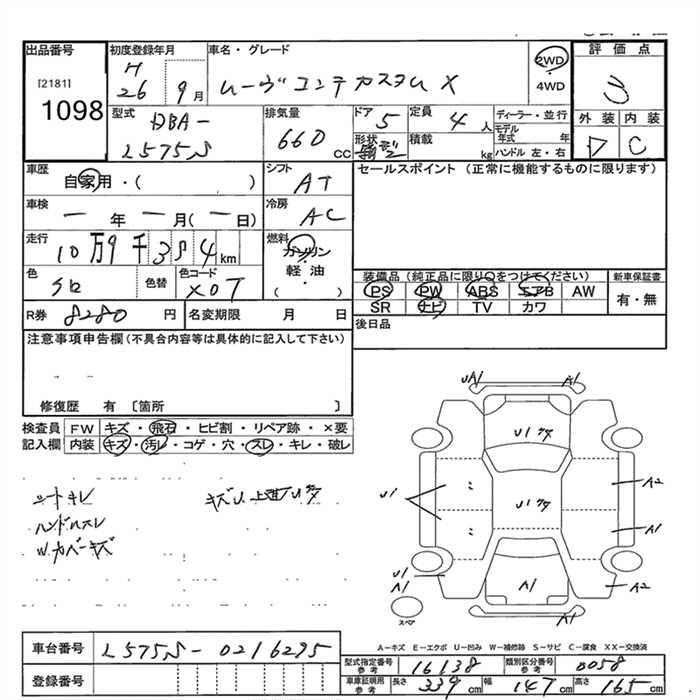 出品番号 初度登録年月 車名・グレード 2WD 評価点
[2181] H 26 9月 ムーヴコンテカスタム X 4WD 3
1098 型式 DBA- 排気量 ドア 5 定員 4人 ディーラー・並行 外装 内装
L575S 660 CC 形状 積載 kg モデル年式 年 D C
ハンドル 左・右
車歴 自家用・( ) シフト AT セールスポイント (正常に機能するものに限ります)
車検 ー年ー月(ー日) 冷房 AC
走行 10万9千384km 燃料 ガソリン・軽油 ( )
色 シロ 色替 色コード X07 装備品(純正品に限り○をつけてください) 新車保証書
PS PW ABS エアB AW 有・無
R券 8280円 名変期限 月 日 SR ナビ TV カワ
後日品
注意事項申告欄(不具合内容等は具体的に記入して下さい)
修復歴 有〔箇所 〕
検査員 FW キズ・飛石・ヒビ割・リペア跡・×要
記入欄 内装 キズ・汚レ・コゲ・穴・スレ・キレ・破レ
シートキレ キズU 上進パUタ
ハンドルスレ
W.カバーキズ
UA1 A1
U1 クタ
U1 U1 クタ A2
A1
U1
A1 A1 A2
スペア A1
A-キズ E-エクボ U-凹み W-補修跡 S-サビ C-腐食 XX-交換済
車台番号 L575S-0216295
型式指定番号 参考 16138 類別区分番号 参考 0058
登録番号 車庫証明用 参考 長さ 339cm 幅 147cm 高さ 165cm